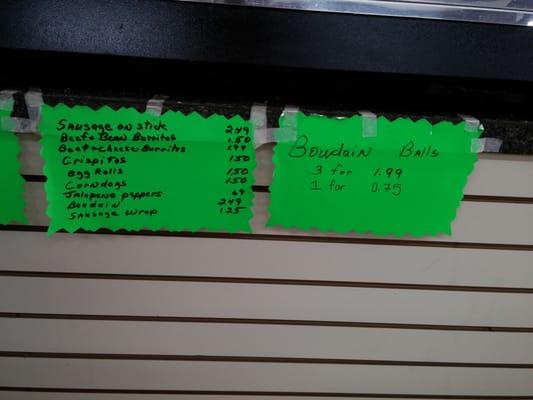 Sausage on stick 2.49
Beef + Bean Burritos 1.50
Beef + Cheese Burritos 1.99
Crispitos 1.50
Egg Rolls 1.50
Corndogs 1.50
Jalapeno peppers .69
Boudain 2.49
Sausage Wrap 1.25
Boudain Balls
3 for 1.99
1 for 0.75